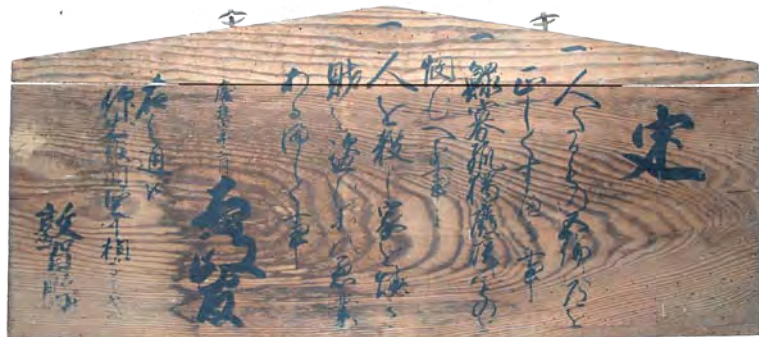 定
一 人たるもの五倫の道を
正しくすへき事
一 鰥寡孤獨癈疾のものを
憫むへき事
一 人を殺し家を焼き
財を盗む等の悪業
あるましく事
慶應四年三月
太政官
右之通被
仰出候間堅可相守
敦賀縣